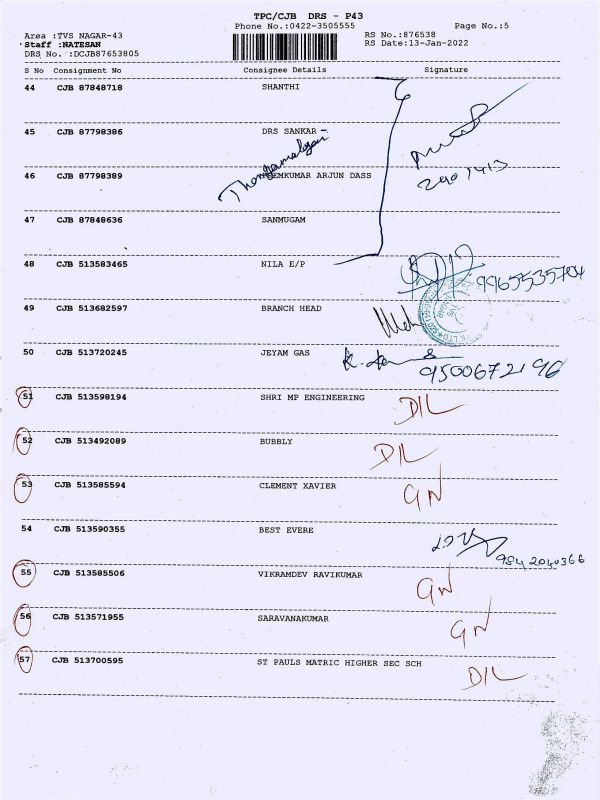 TPC/CJB DRS - P43
Phone No.:0422-3505555
Page No.:5
Area :TVS NAGAR-43
RS No.:876538
Staff :NATESAN
RS Date:13-Jan-2022
DRS No. :DCJB87653805
S No Consignment No Consignee Details Signature
44 CJB 87848718 SHANTHI
45 CJB 87798386 DRS SANKAR
46 CJB 87798389 ARJUN DASS
47 CJB 87848636 SANMUGAM
48 CJB 513583465 NILA E/P
49 CJB 513682597 BRANCH HEAD
50 CJB 513720245 JEYAM GAS
9500672190
51 CJB 513598194 SHRI MP ENGINEERING D/L
52 CJB 513492089 BUBBLY D/L
53 CJB 513585594 CLEMENT XAVIER GN
54 CJB 513590355 BEST EVERE
9842040366
55 CJB 513585506 VIKRAMDEV RAVIKUMAR GN
56 CJB 513571955 SARAVANAKUMAR GN
57 CJB 513700595 ST PAULS MATRIC HIGHER SEC SCH D/L